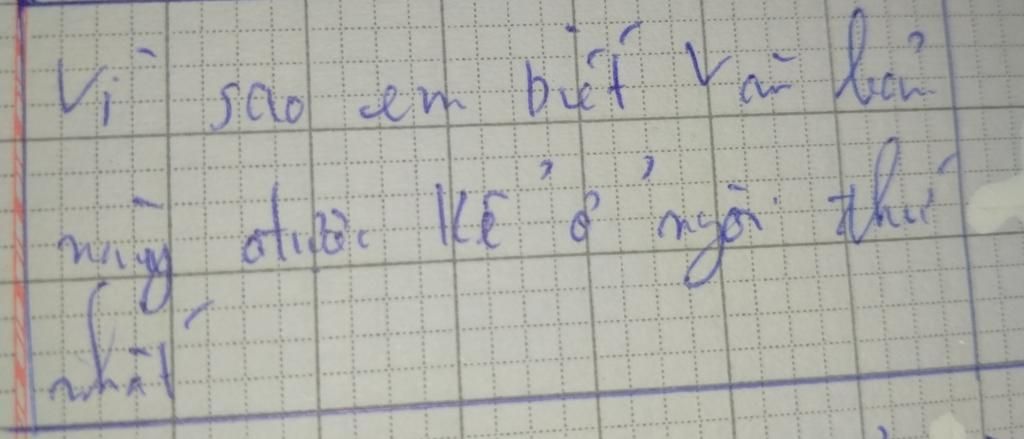 Vì sao em biết Văn bản
này được kể ở ngôi thứ
nhất